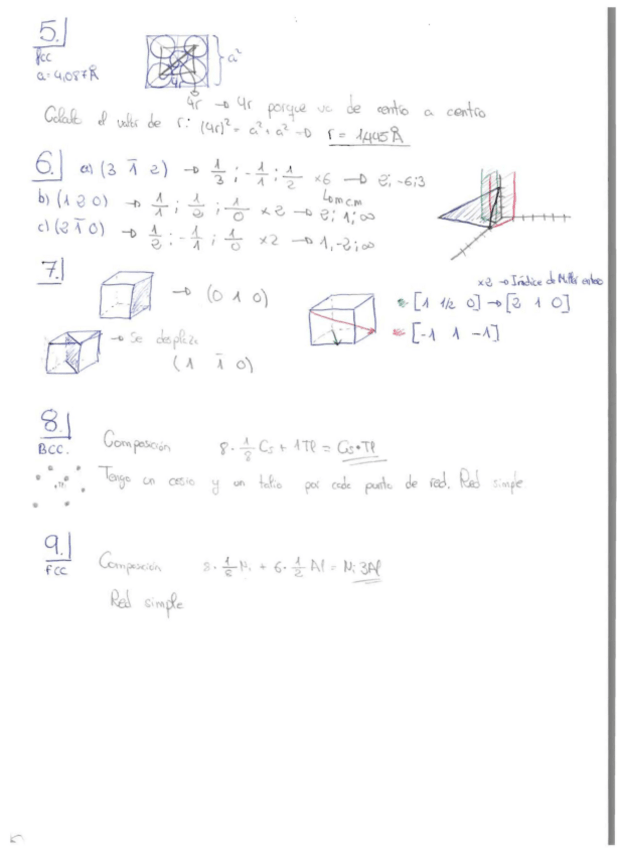 5.
fcc
a=4,087Å
a²
4r
4r → 4r porque va de centro a centro
Calculo el valor de r: (4r)² = a² + a² → r = 1,445Å
6. a) (3 1̄ 2) → 1/3 ; -1/1 ; 1/2 ×6 → 2; -6; 3
mcm
b) (1 2 0) → 1/1 ; 1/2 ; 1/0 ×2 → 2; 1; ∞
c) (2 1̄ 0) → 1/2 ; -1/1 ; 1/0 ×2 → 1, -2; ∞
7.
→ (0 1 0)
×2 → Índice de Miller entero
[1 1/2 0] → [2 1 0]
[-1 1 -1]
→ Se desplaza
(1 1̄ 0)
8.
BCC.
Composición 8·1/8 Cs + 1Tl = Cs·Tl
Tengo un cesio y un talio por cada punto de red. Red simple
9.
FCC
Composición 8·1/8 Ni + 6·1/2 Al = Ni 3Al
Red simple